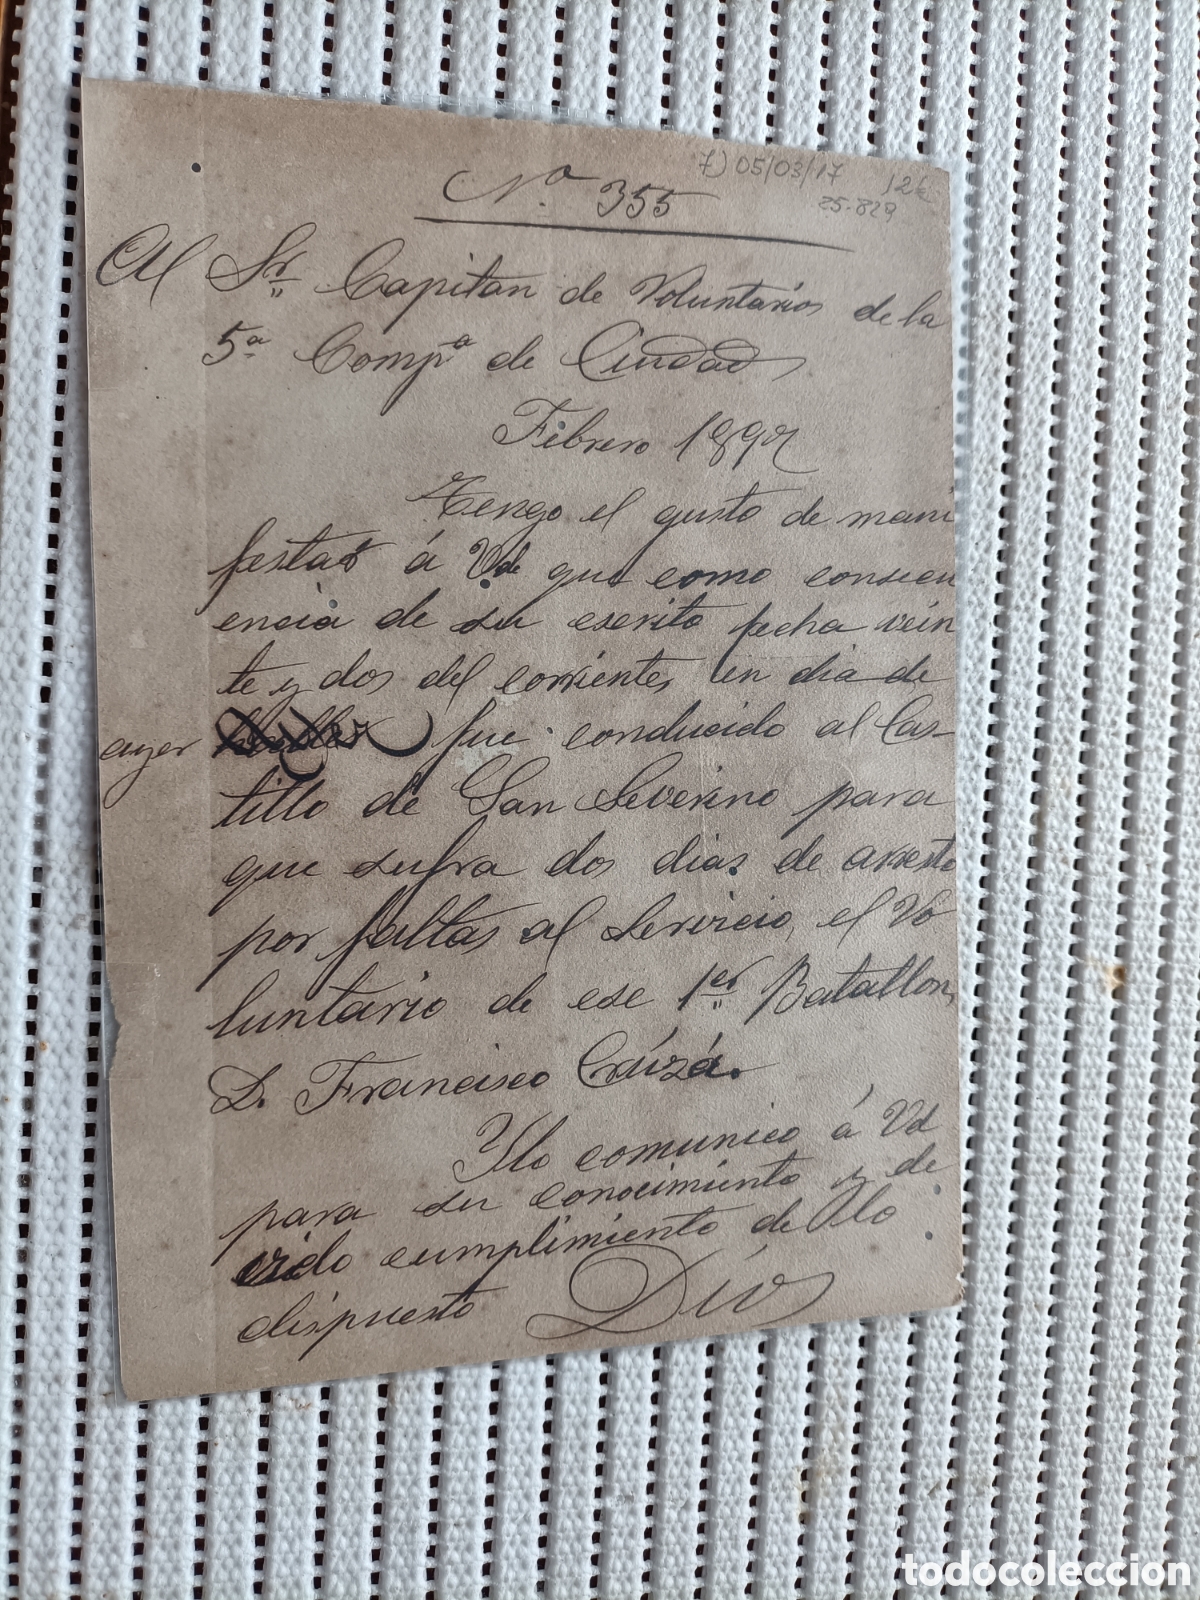 7) 05/03/17 12€
25-829
Nº 355
Al Sr. Capitan de Voluntarios de la
5ª Compª de Ciudad
Febrero 1892
Tengo el gusto de mani
festar á Vd que como consecu
encia de su escrito fecha vein
te y dos del corriente, en dia de
ayer fue conducido al Cas-
tillo de San Severino para
que sufra dos dias de arresto
por faltas al servicio, el Vo
luntario de ese 1er Batallon,
D. Francisco
Ylo comunico á Vd
para su conocimiento y de
vido cumplimiento de lo
dispuesto Dios
todocoleccion